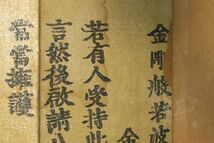 金剛般若波
金
若有人受持此
言然後啟請八
常當擁護